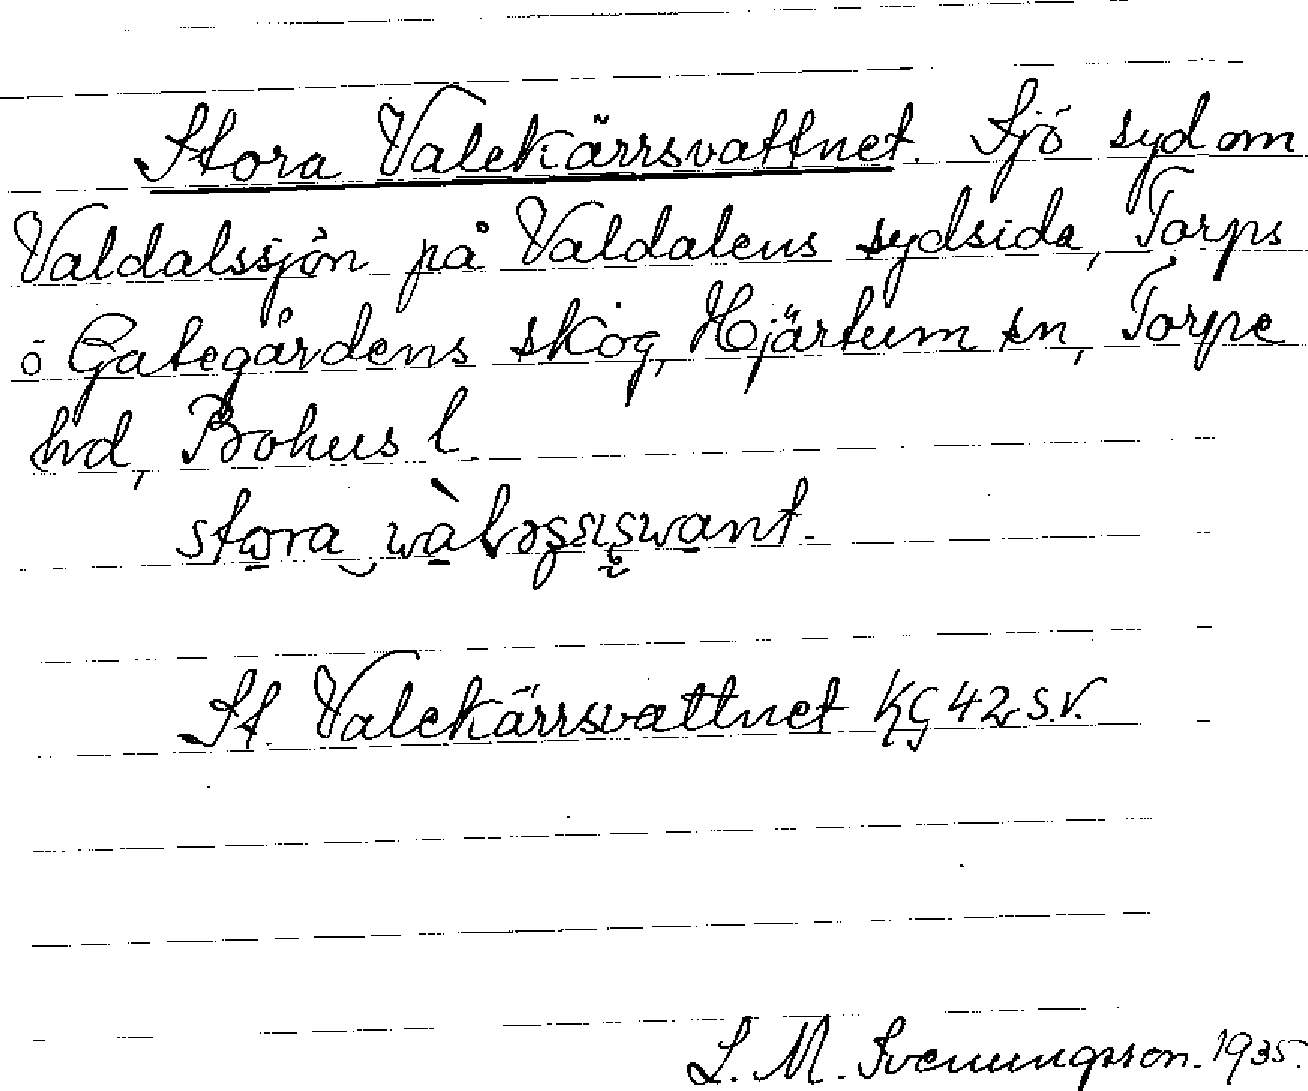 Stora Valekärrsvattnet. Sjö syd om
Valdalssjön på Valdalens sydsida, Torps
ö Gategårdens skog, Hjärtum sn, Torpe
hd, Bohus l.
stora
St. Valekärrsvattnet KG 42 S.V.
L. M. Svenungsson. 1935.